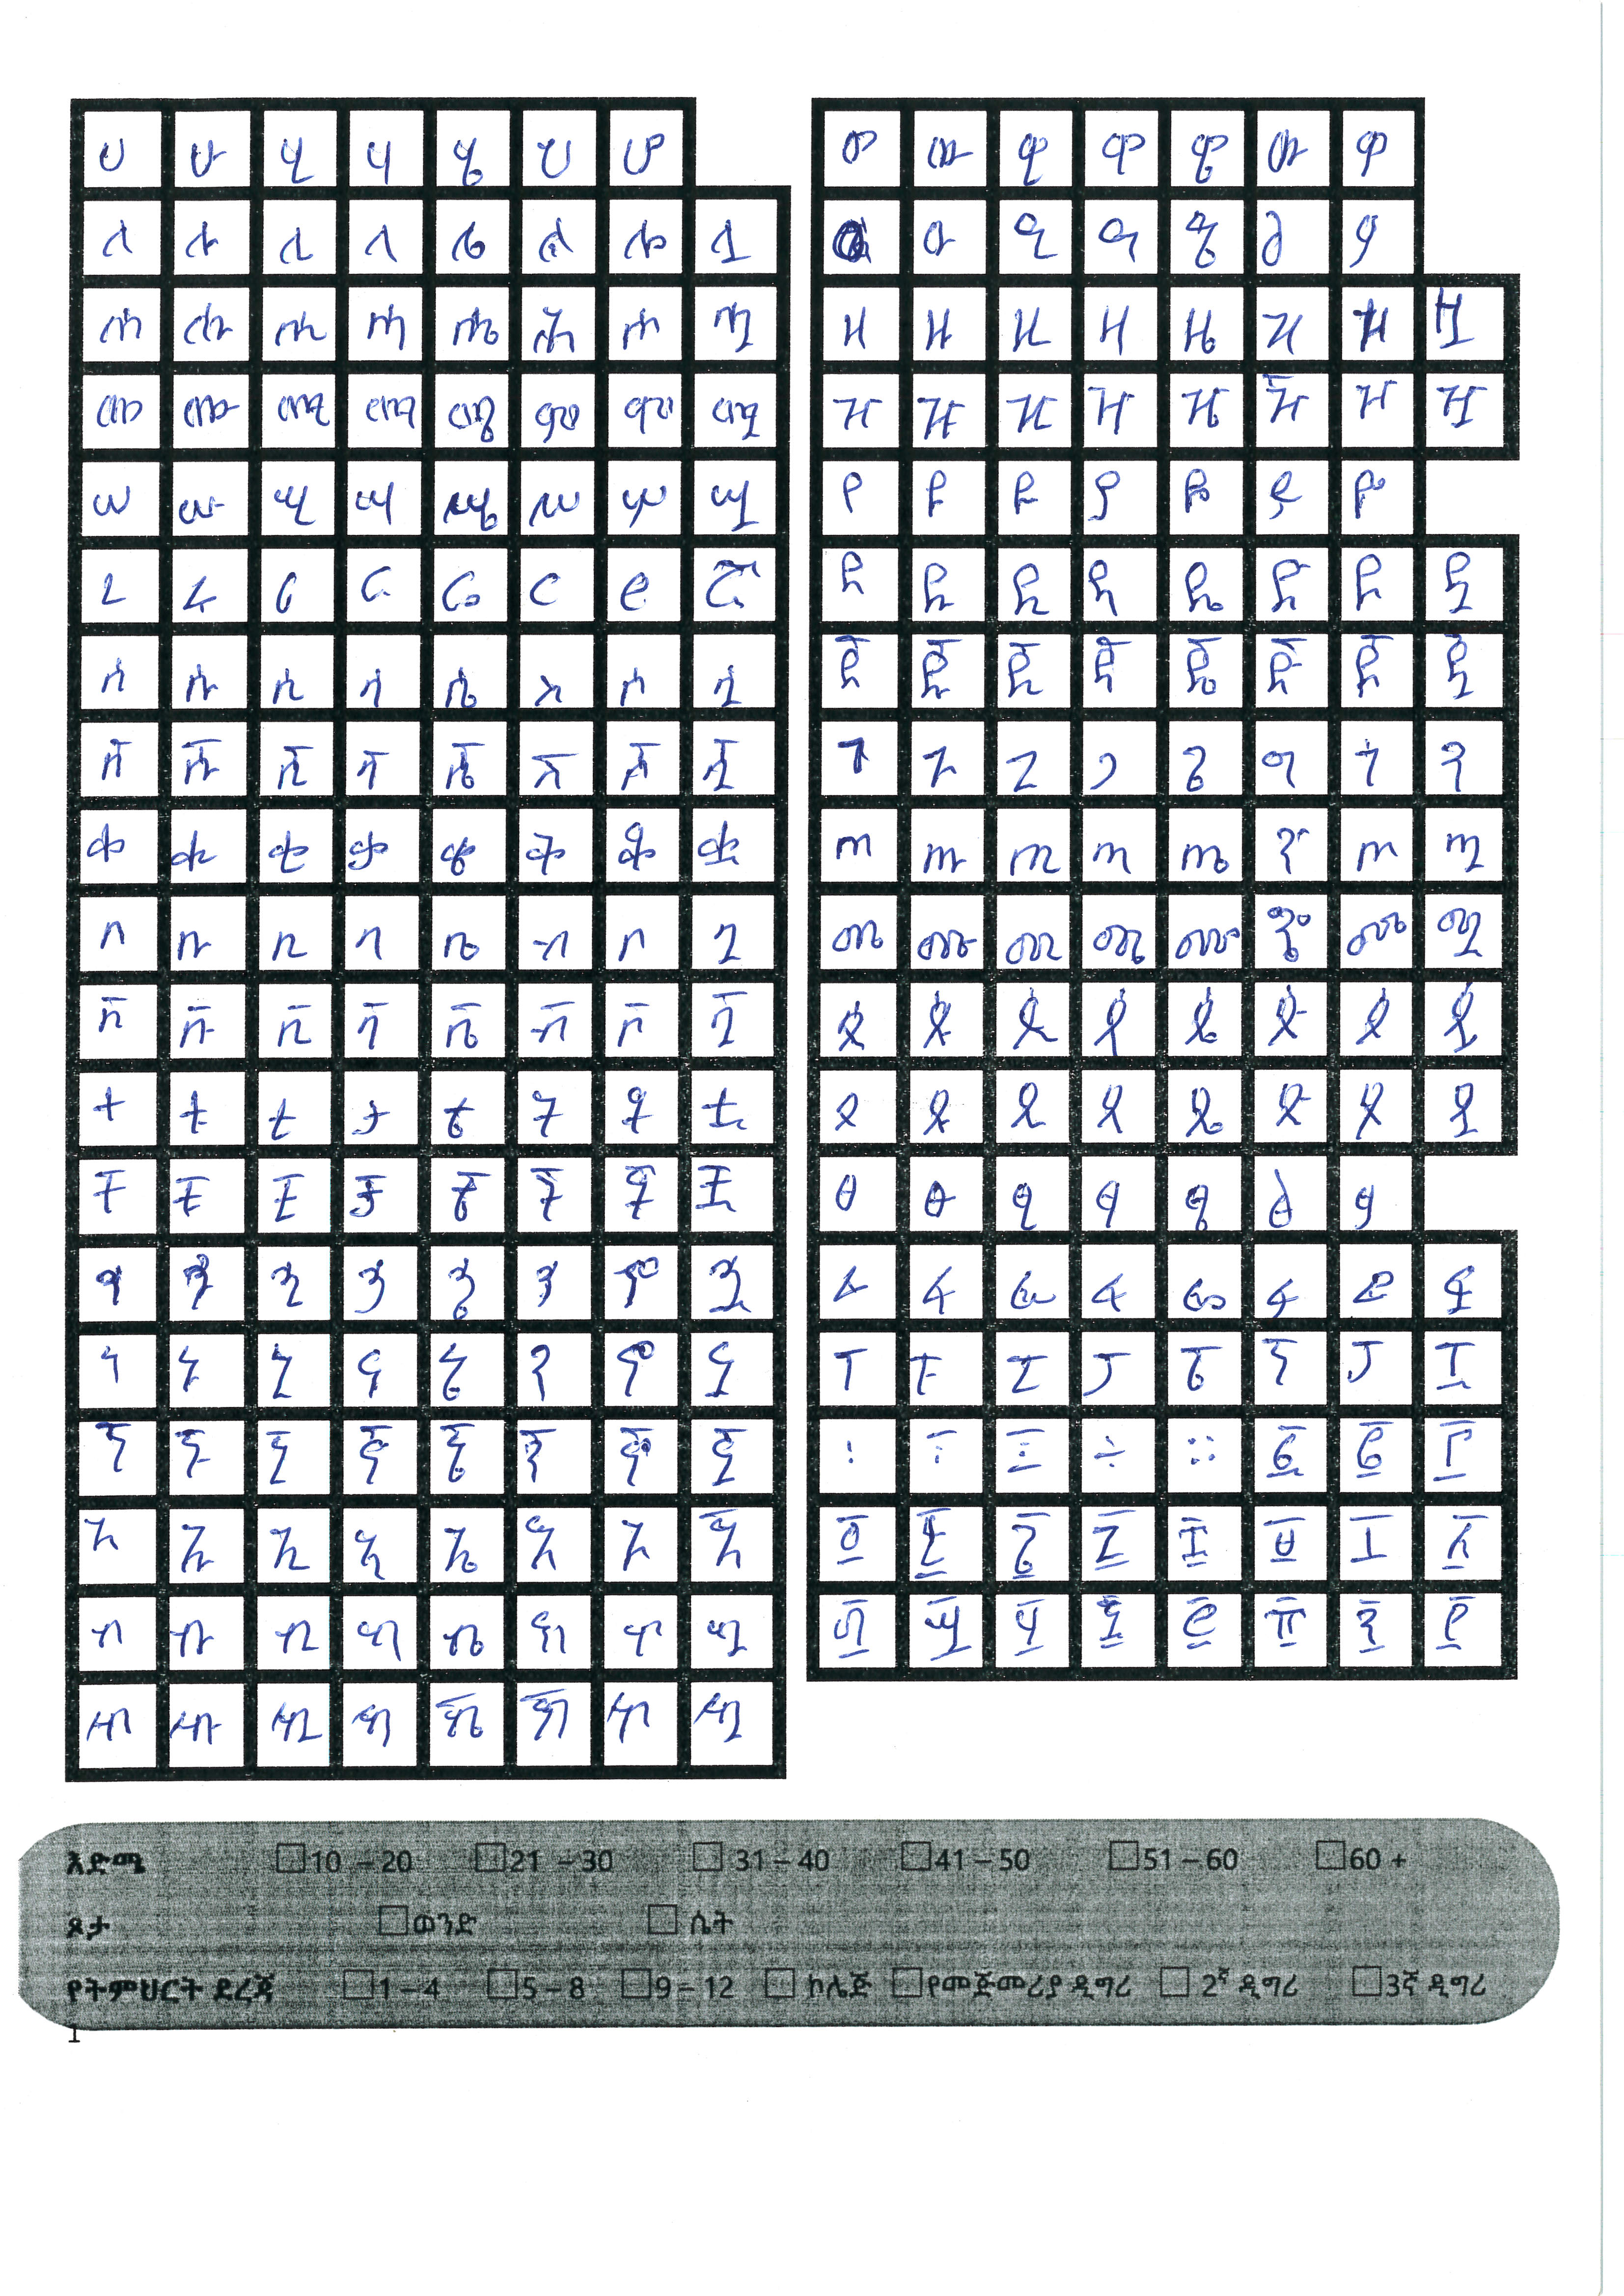 ሀ ሁ ሂ ሃ ሄ ህ ሆ
ለ ሉ ሊ ላ ሌ ል ሎ ሏ
ሐ ሑ ሒ ሓ ሔ ሕ ሖ ሗ
መ ሙ ሚ ማ ሜ ም ሞ ሟ
ሠ ሡ ሢ ሣ ሤ ሥ ሦ ሧ
ረ ሩ ሪ ራ ሬ ር ሮ ሯ
ሰ ሱ ሲ ሳ ሴ ስ ሶ ሷ
ሸ ሹ ሺ ሻ ሼ ሽ ሾ ሿ
ቀ ቁ ቂ ቃ ቄ ቅ ቆ ቋ
በ ቡ ቢ ባ ቤ ብ ቦ ቧ
ቨ ቩ ቪ ቫ ቬ ቭ ቮ ቯ
ተ ቱ ቲ ታ ቴ ት ቶ ቷ
ቸ ቹ ቺ ቻ ቼ ች ቾ ቿ
ኀ ኁ ኂ ኃ ኄ ኅ ኆ ኋ
ነ ኑ ኒ ና ኔ ን ኖ ኗ
ኘ ኙ ኚ ኛ ኜ ኝ ኞ ኟ
አ ኡ ኢ ኣ ኤ እ ኦ ኧ
ከ ኩ ኪ ካ ኬ ክ ኮ ኳ
ኸ ኹ ኺ ኻ ኼ ኽ ኾ ዃ
ወ ዉ ዊ ዋ ዌ ው ዎ
ዑ ዒ ዓ ዔ ዕ ዖ
ዘ ዙ ዚ ዛ ዜ ዝ ዞ ዟ
ዠ ዡ ዢ ዣ ዤ ዥ ዦ ዧ
የ ዩ ዪ ያ ዬ ይ ዮ
ደ ዱ ዲ ዳ ዴ ድ ዶ ዷ
ጀ ጁ ጂ ጃ ጄ ጅ ጆ ጇ
ገ ጉ ጊ ጋ ጌ ግ ጎ ጓ
ጠ ጡ ጢ ጣ ጤ ጥ ጦ ጧ
ጨ ጩ ጪ ጫ ጬ ጭ ጮ ጯ
ጰ ጱ ጲ ጳ ጴ ጵ ጶ ጷ
ጸ ጹ ጺ ጻ ጼ ጽ ጾ ጿ
ፀ ፁ ፂ ፃ ፄ ፅ ፆ
ፈ ፉ ፊ ፋ ፌ ፍ ፎ ፏ
ፐ ፑ ፒ ፓ ፔ ፕ ፖ ፗ
፡ ፣ ፤ ÷ ። ፩ ፪ ፫
፬ ፭ ፮ ፯ ፰ ፱ ፲ ፳
፴ ፵ ፶ ፷ ፸ ፹ ፺ ፻
እድሜ 10 – 20 21 – 30 31 – 40 41 – 50 51 – 60 60 +
ጾታ ወንድ ሴት
የትምህርት ደረጃ 1 – 4 5 – 8 9 – 12 ኮሌጅ የመጀመሪያ ዲግሪ 2ኛ ዲግሪ 3ኛ ዲግሪ
1